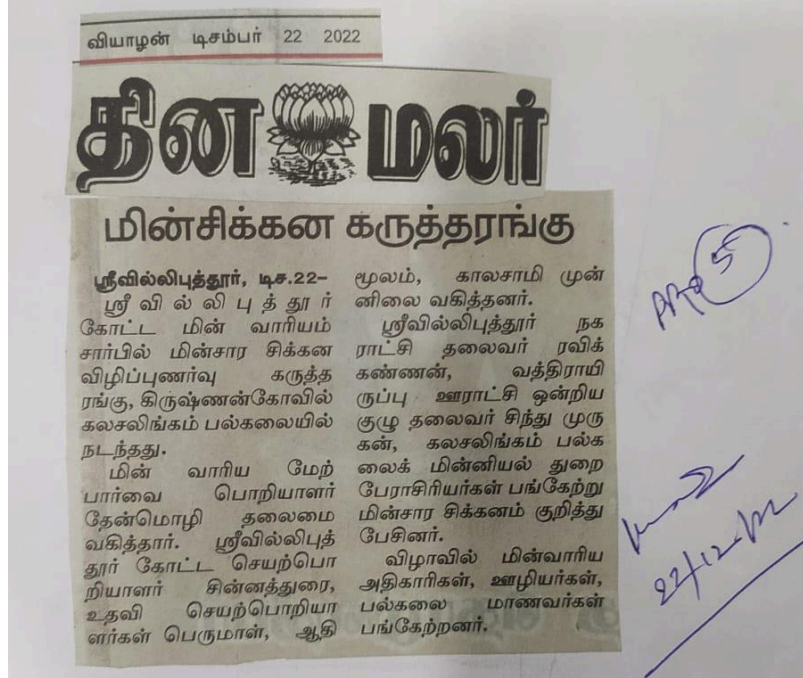 வியாழன் டிசம்பர் 22 2022
தின மலர்
மின்சிக்கன கருத்தரங்கு
ஸ்ரீவில்லிபுத்தூர், டிச.22–
ஸ்ரீவில்லிபுத்தூர்
கோட்ட மின் வாரியம்
சார்பில் மின்சார சிக்கன
விழிப்புணர்வு கருத்த
ரங்கு, கிருஷ்ணன்கோவில்
கலசலிங்கம் பல்கலையில்
நடந்தது.
மின் வாரிய மேற்
பார்வை பொறியாளர்
தேன்மொழி தலைமை
வகித்தார். ஸ்ரீவில்லிபுத்
தூர் கோட்ட செயற்பொ
றியாளர் சின்னத்துரை,
உதவி செயற்பொறியா
ளர்கள் பெருமாள், ஆதி
மூலம், காலசாமி முன்
னிலை வகித்தனர்.
ஸ்ரீவில்லிபுத்தூர் நக
ராட்சி தலைவர் ரவிக்
கண்ணன், வத்திராயி
ருப்பு ஊராட்சி ஒன்றிய
குழு தலைவர் சிந்து முரு
கன், கலசலிங்கம் பல்க
லைக் மின்னியல் துறை
பேராசிரியர்கள் பங்கேற்று
மின்சார சிக்கனம் குறித்து
பேசினர்.
விழாவில் மின்வாரிய
அதிகாரிகள், ஊழியர்கள்,
பல்கலை மாணவர்கள்
பங்கேற்றனர்.
5
22/12/22